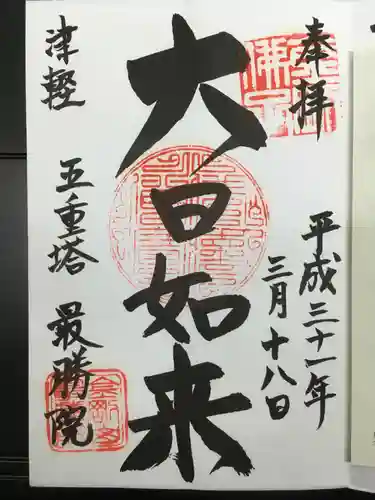 奉拝
平成三十一年
三月十八日
大日如来
津軽
五重塔
最勝院